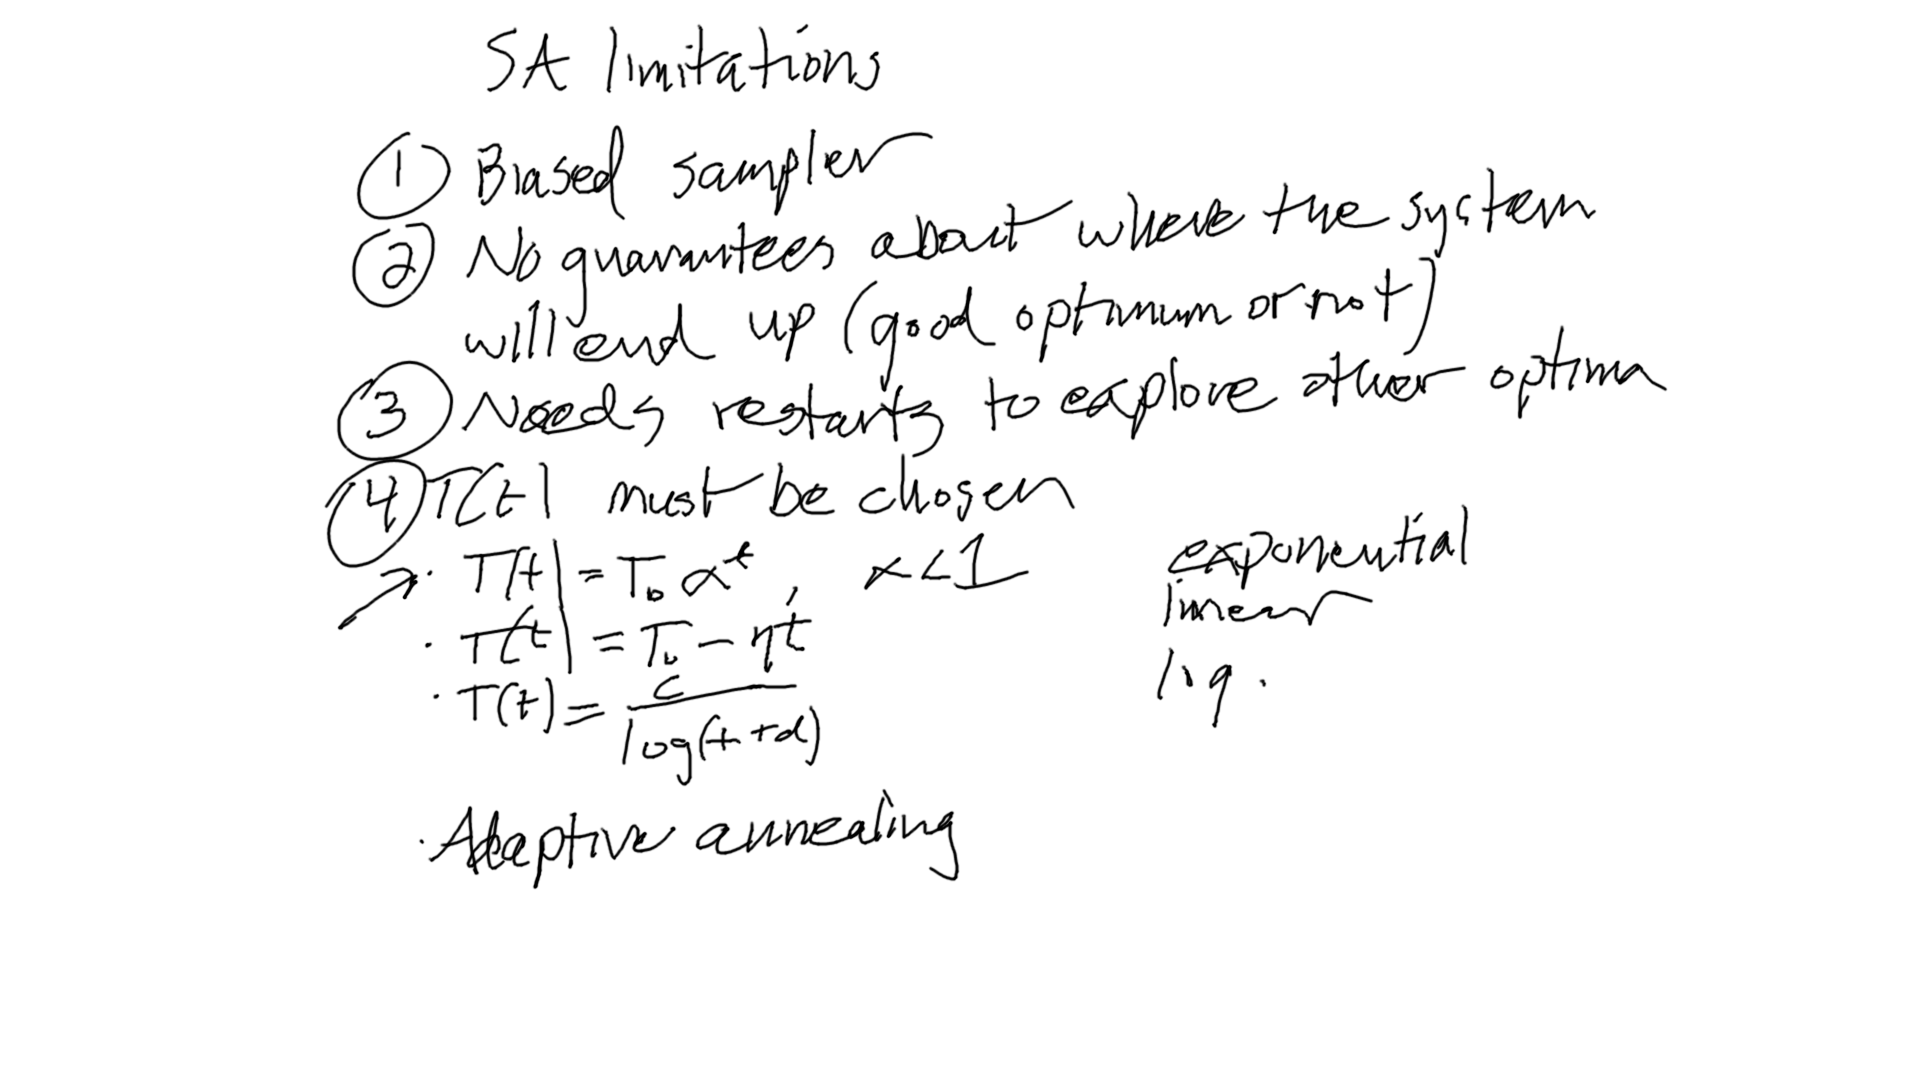 SA limitations
① Biased sampler
② No guarantees about where the system
will end up (good optimum or not)
③ Needs restarts to explore other optima
④ T(t) must be chosen
→ · T(t) = T₀ αᵗ, α < 1 exponential
· T(t) = T₀ - ηt linear
· T(t) = c / log(t + d) log.
· Adaptive annealing